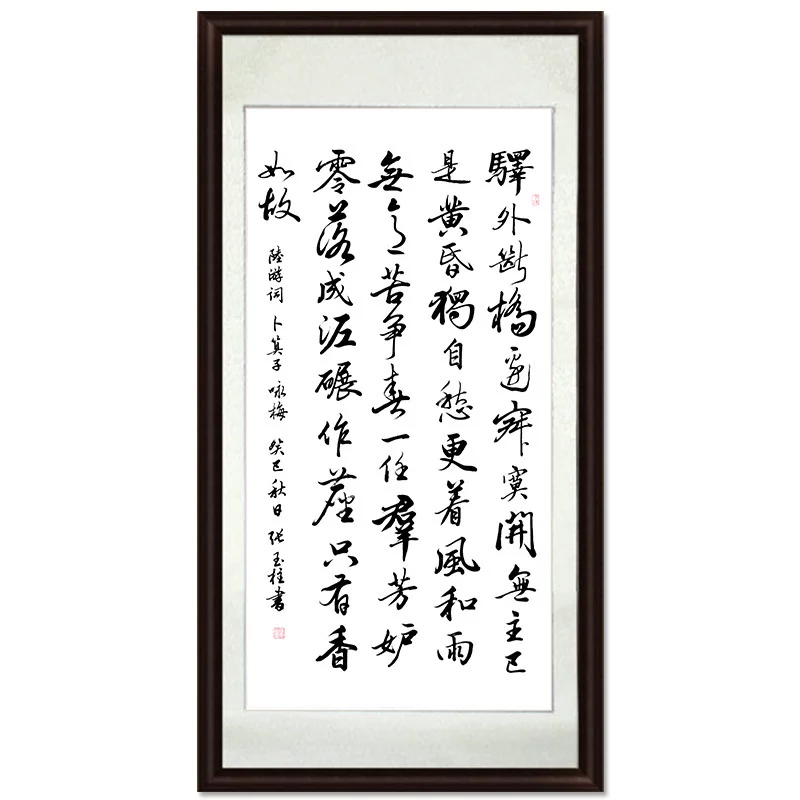 驛外斷橋邊寂寞開無主已
是黃昏獨自愁更着風和雨
無意苦争春一任羣芳妒
零落成泥碾作塵只有香
如故
陸游词 卜算子 咏梅 癸巳秋日 张玉柱書